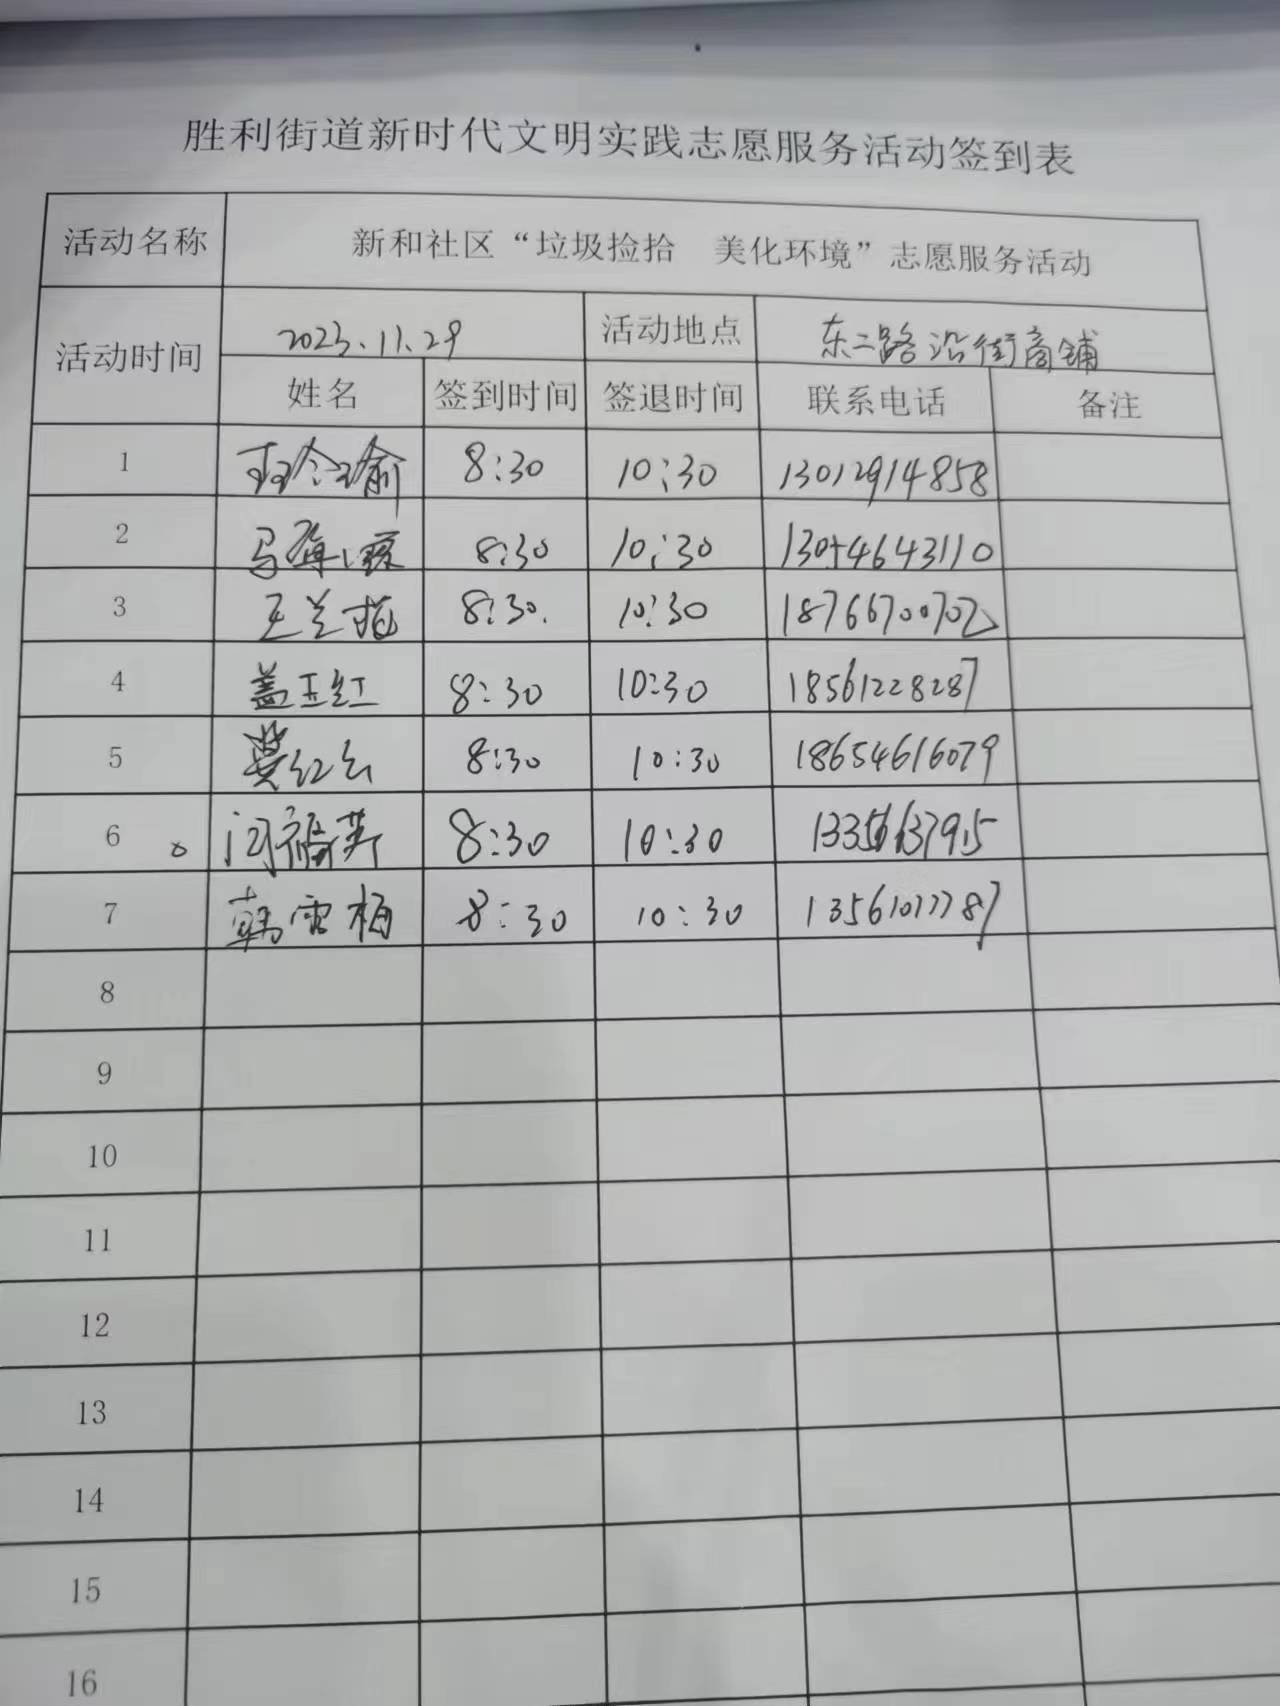 胜利街道新时代文明实践志愿服务活动签到表
活动名称 新和社区“垃圾捡拾 美化环境”志愿服务活动
活动时间 2023.11.29 活动地点 东二路沿街商铺
姓名 签到时间 签退时间 联系电话 备注
1 8:30 10:30 13012914858
2 8:30 10:30 13054643110
3 王兰 8:30. 10:30 18766700702
4 盖玉红 8:30 10:30 18561228287
5 红云 8:30 10:30 18654616079
6 闫福英 8:30 10:30
7 韩雪梅 8:30 10:30
8
9
10
11
12
13
14
15
16